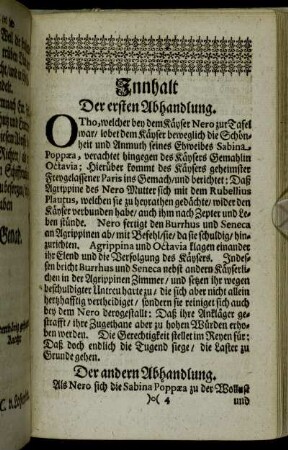 Innhalt
Der ersten Abhandlung.
OTho, welcher bey dem Käyser Nero zur Tafel
war / lobet dem Käyser beweglich die Schön-
heit und Anmuth seines Ehweibes Sabina
Poppæa, verachtet hingegen des Käysers Gemahlin
Octavia; Hierüber kommt des Käysers geheimster
Freygelassener Paris ins Gemach / und berichtet: Daß
Agrippine des Nero Mutter sich mit dem Rubellius
Plautus, welchen sie zu heyrathen gedächte / wider den
Käyser verbunden habe / auch ihm nach Zepter und Le-
ben stünde. Nero fertigt den Burrhus und Seneca
an Agrippinen ab / mit Befehl / sie / da sie schuldig / hin-
zurichten. Agrippina und Octavia klagen einander
ihr Elend und die Verfolgung des Käysers. Indes-
sen bricht Burrhus und Seneca nebst andern Käyserli-
chen in der Agrippinen Zimmer / und setzen ihr wegen
beschuldigter Untreu harte zu / die sich aber nicht allein
hertzhafftig vertheidiget / sondern sie reiniget sich auch
bey dem Nero derogestallt: Daß ihre Ankläger ge-
strafft / ihre Zugethane aber zu hohen Würden erho-
ben werden. Die Gerechtigkeit stellet im Reyen für:
Daß doch endlich die Tugend siege / die Laster zu
Grunde gehen.
Der andern Abhandlung.
Als Nero sich die Sabina Poppæa zu der Wollust
)o( 4 und